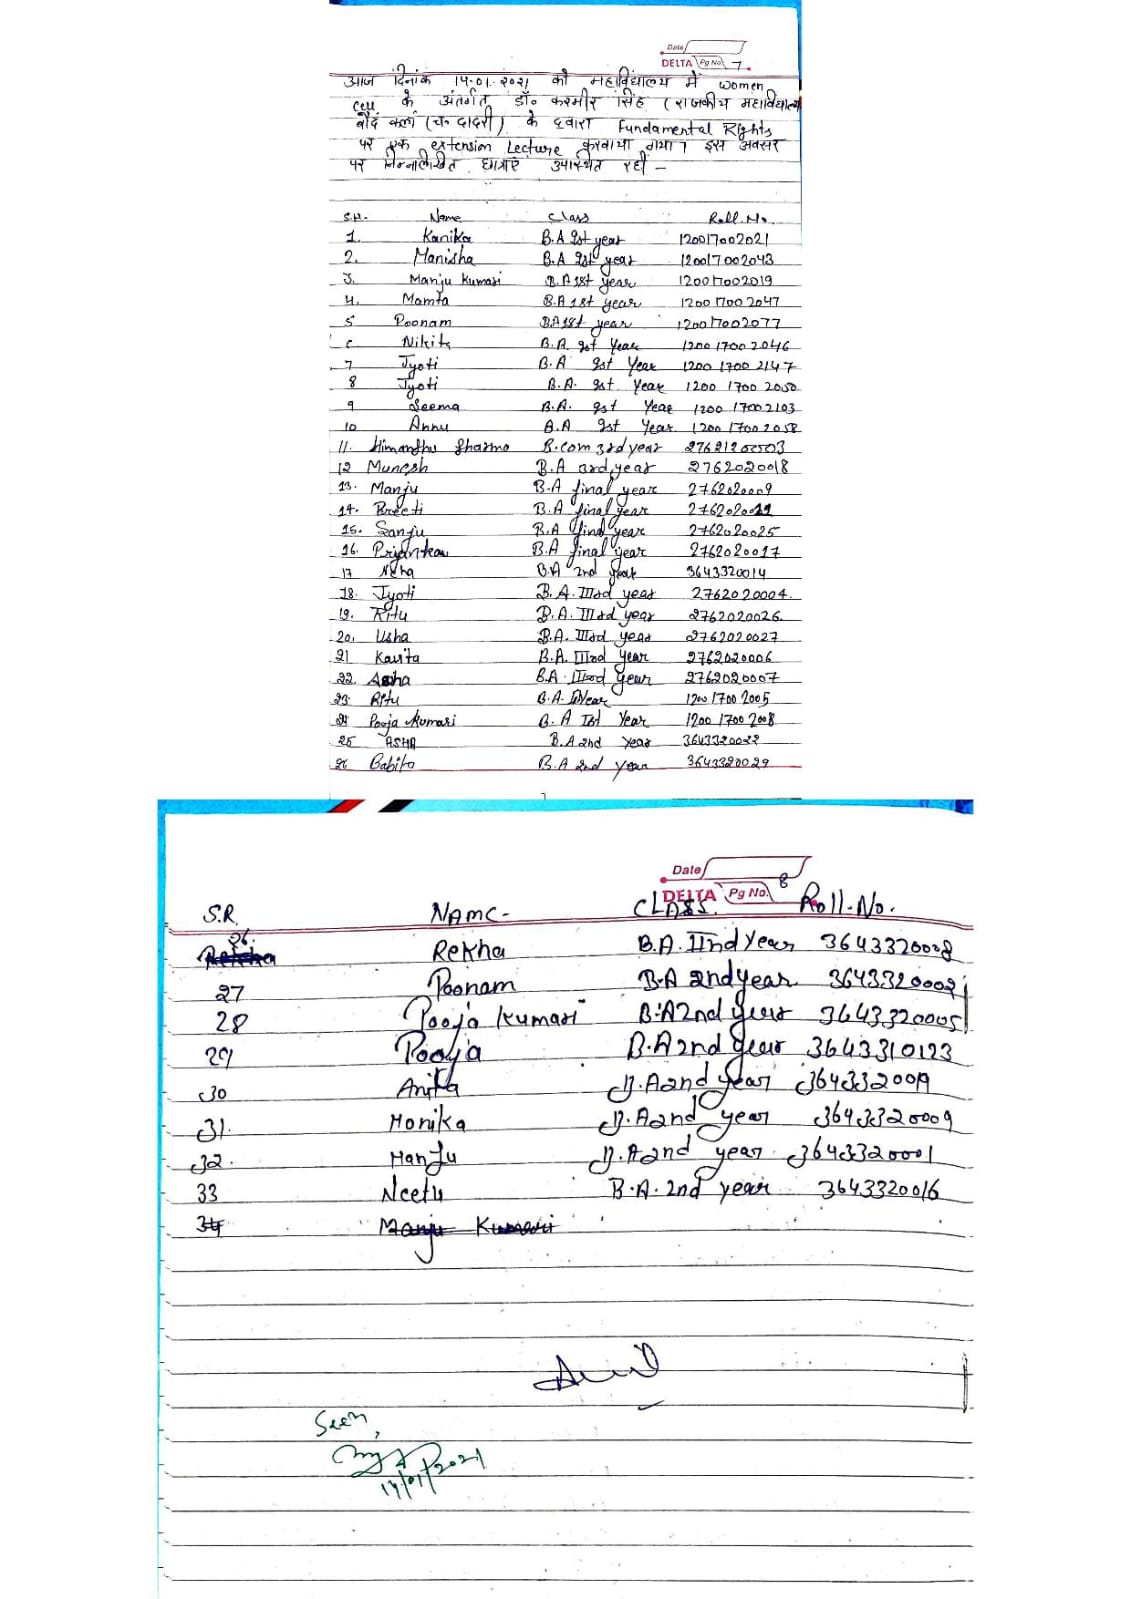 Date
DELTA Pg No. 7
आज दिनांक 14.01.2021 को महाविद्यालय में Women
Cell के अंतर्गत डॉ० कश्मीर सिंह (राजकीय महाविद्यालय
बौंद कलां (च० दादरी) के द्वारा Fundamental Rights
पर एक extension Lecture करवाया गया। इस अवसर
पर निम्नलिखित छात्राएं उपस्थित रही -
S.N. Name Class Roll.No.
1. Kanika B.A 1st year 120017002021
2. Manisha B.A 1st year 120017002043
3. Manju Kumari B.A 1st year 120017002019
4. Mamta B.A 1st year 120017002047
5 Poonam B.A 1st year 120017002077
6 Nikita B.A. 1st Year 120017002046
7 Jyoti B.A 1st Year 120017002147
8 Jyoti B.A. 1st Year 120017002050
9 Seema B.A. 1st Year 120017002103
10 Annu B.A 1st Year 120017002058
11. Himanshu Sharma B.com 3rd year
12 Munesh B.A 3rd year 2762020018
13. Manju B.A final year 2762020009
14. Preeti B.A final year
15. Sanju B.A final year 2762020025
16. Priyanka B.A final year 2762020017
17 Neha B.A 2nd year 3643320014
18. Jyoti B.A. IIIrd year 2762020004.
19. Ritu B.A. IIIrd year 2762020026.
20. Usha B.A. IIIrd year 2762020027
21 Kavita B.A. IIIrd Year 2762020006
22. Asha B.A. IIIrd Year 2762020007
23. Ritu B.A. Year 120017002005
24 Pooja Kumari B.A Ist Year 120017002008
25 ASHA B.A 2nd Year 3643320022
26 Babita B.A 2nd year 3643320029
Date
DELTA Pg No. 8
S.R. NAME CLASS. Roll-No.
26. Rekha B.A. IInd Year 3643320008
27 Poonam B.A 2nd year 3643320002
28 Pooja Kumari B.A 2nd year 3643320005
29 Pooja B.A 2nd year 3643310123
30 Anita B.A 2nd year
31. Monika B.A 2nd year 3643320009
32. Manju B.A 2nd year 3643320001
33 Neetu B.A. 2nd year 3643320016
34 Manju Kumari
Seen,
14/01/2021